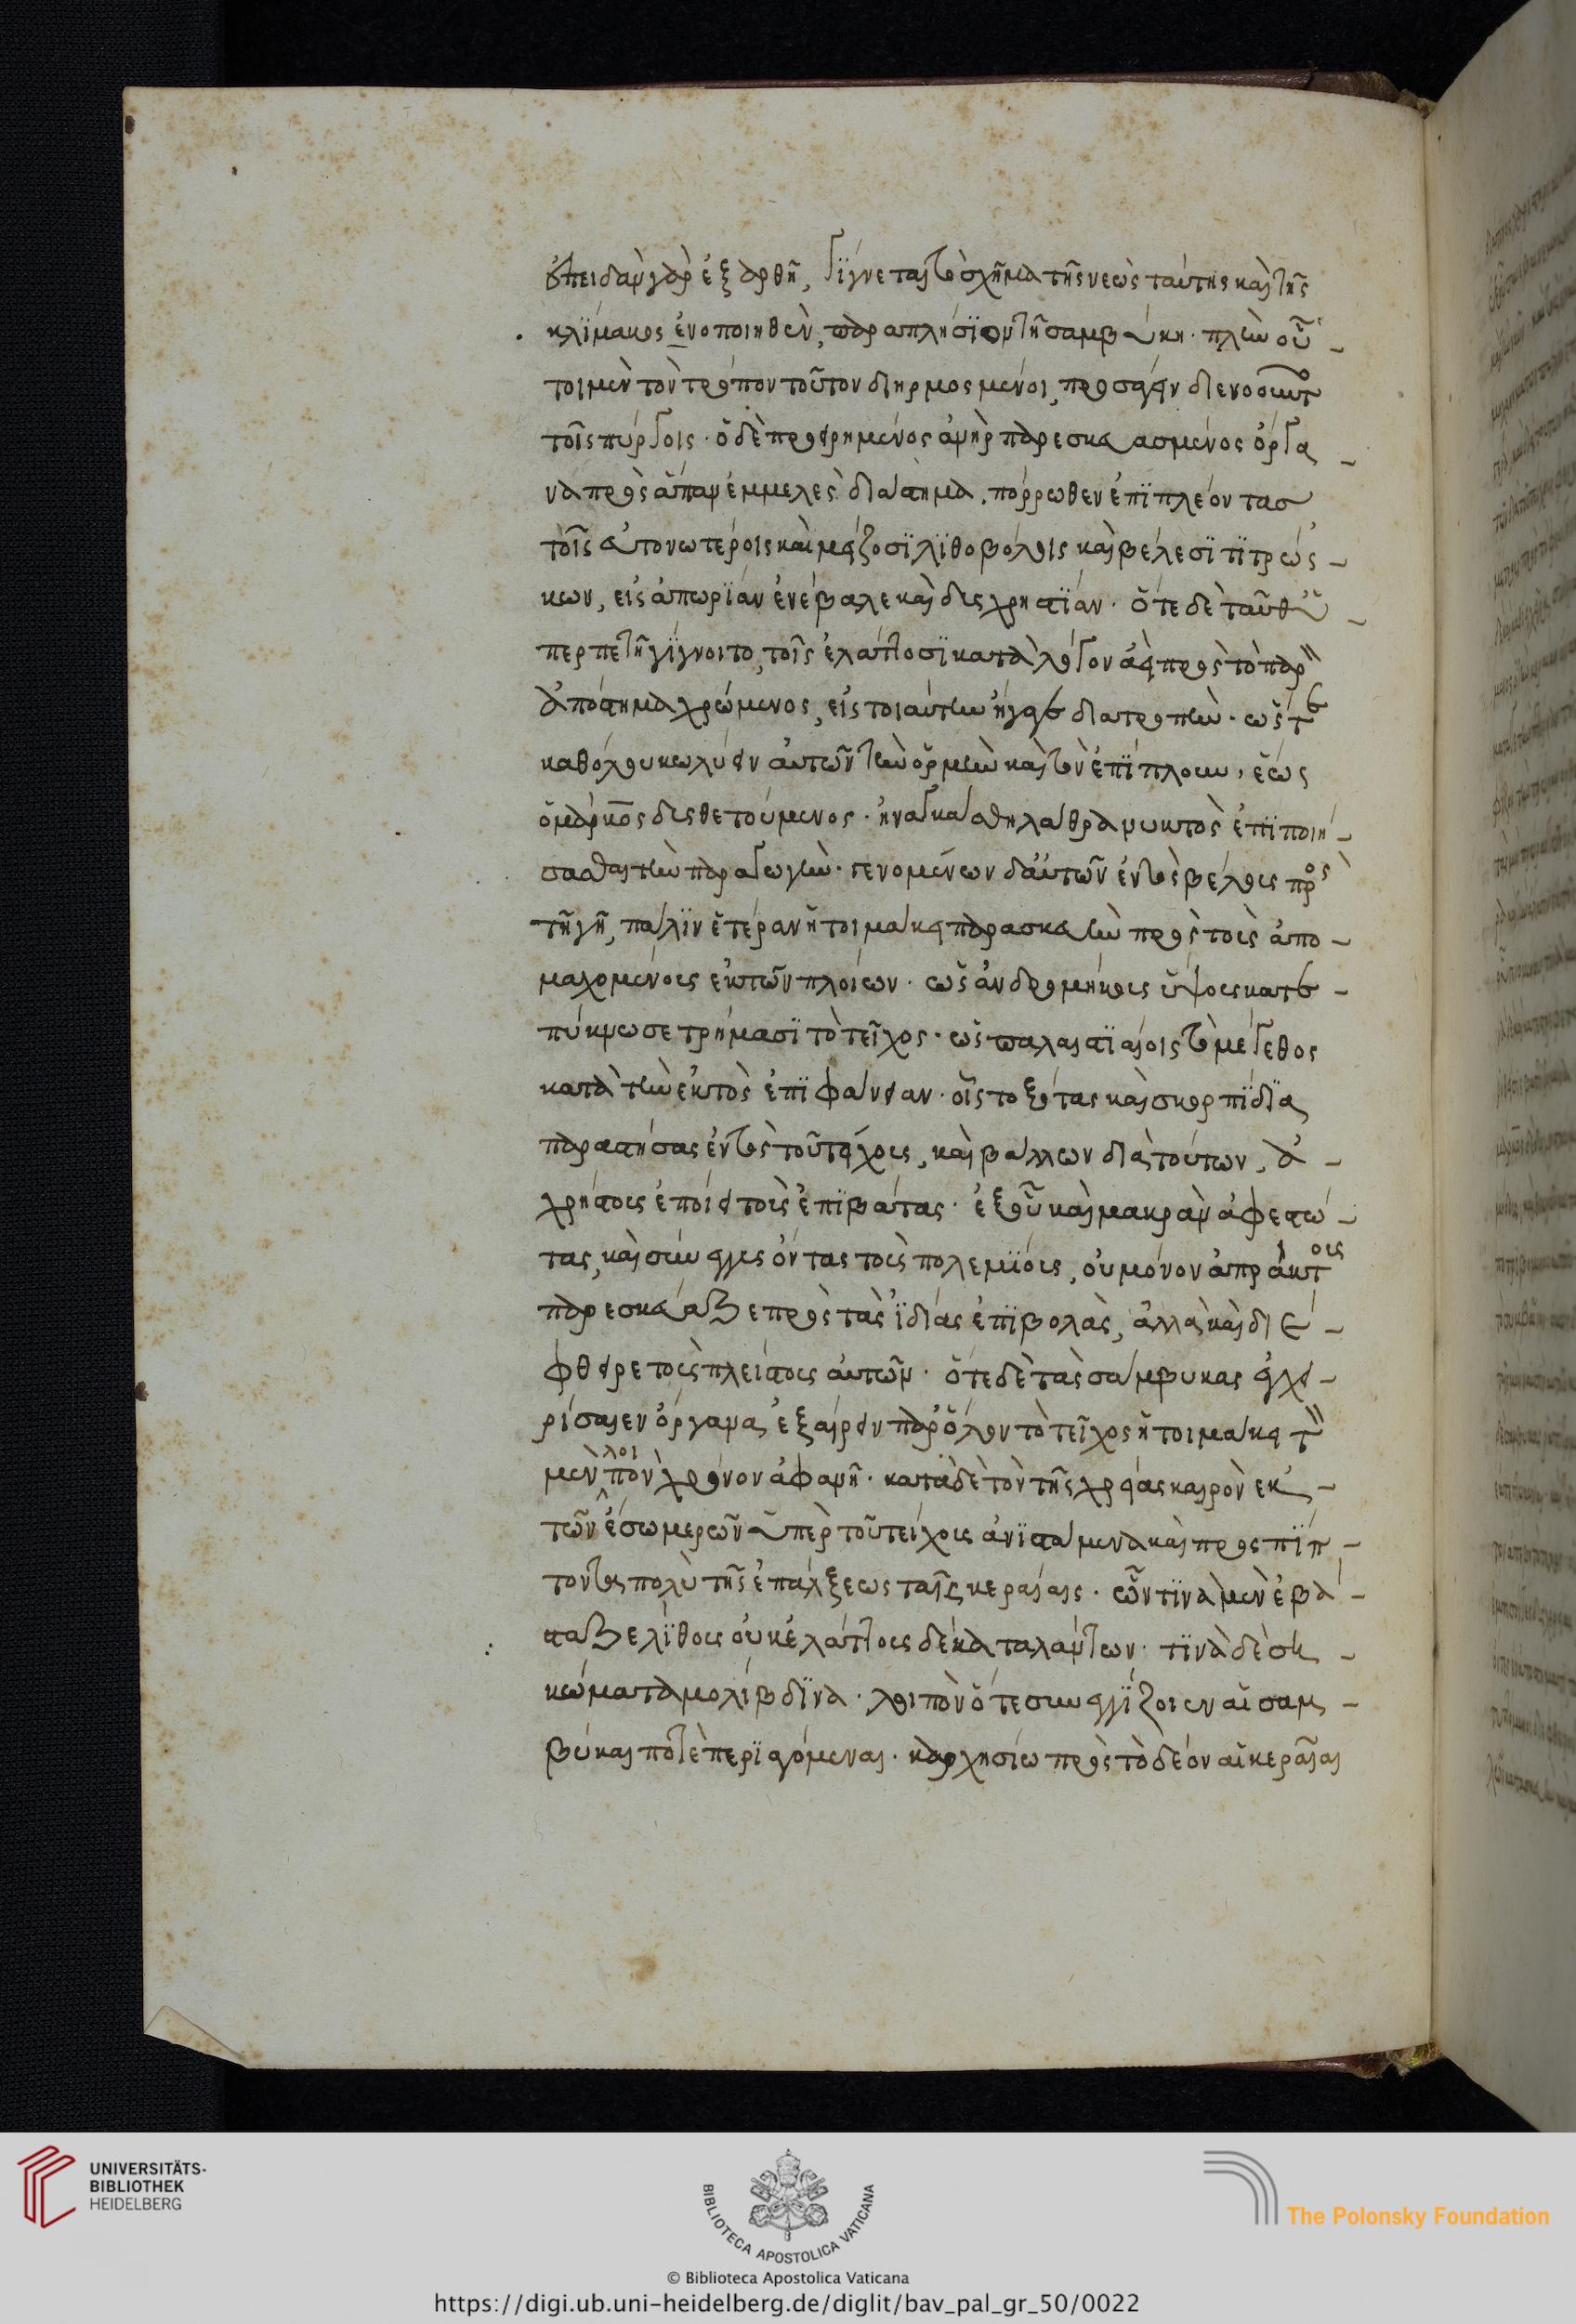 ἐπειδὰν γὰρ ἐξαρθῇ, γίγνεται τὸ σχῆμα τῆς νεὼς ταύτης καὶ τῆς
κλίμακος ἑνοποιηθὲν, παραπλήσιον τῇ σαμβύκῃ. πλὴν οὗ-
τοι μὲν τὸν τρόπον τοῦτον διηρμοσμένοι, προσάγειν διενοοῦντο
τοῖς πύργοις. ὁ δὲ προειρημένος ἀνὴρ παρεσκευασμένος ὄργα-
να πρὸς ἅπαν ἐμμελὲς διάστημα, πόρρωθεν ἐπιπλέοντας
τοῖς εὐτονωτέροις καὶ μείζοσι λιθοβόλοις καὶ βέλεσι τιτρώσ-
κων, εἰς ἀπορίαν ἐνέβαλε καὶ δυσχρηστίαν. ὅτε δὲ ταῦθ' ὑ-
περπετῆ γίγνοιτο, τοῖς ἐλάττοσι κατὰ λόγον ἀεὶ πρὸς τὸ παρὸν
ἀπόστημα χρώμενος, εἰς τοιαύτην ἤγαγε διατροπὴν. ὥστε
καθόλου κωλύειν αὐτῶν τὴν ὁρμὴν καὶ τὸν ἐπίπλουν, ἕως
ὁ μάρκος δυσθετούμενος. ἠναγκάσθη λάθρα νυκτὸς ἔτι ποιή-
σασθαι τὴν παραγωγὴν. γενομένων δ' αὐτῶν ἐντὸς βέλους πρὸς
τῇ γῇ, πάλιν ἑτέραν ἡτοιμάκει παρασκευὴν πρὸς τοὺς ἀπο-
μαχομένους ἐκ τῶν πλοίων. ἕως ἀνδρομήκους ὕψους κατε-
πύκνωσε τρήμασι τὸ τεῖχος. ὡς παλαιστιαίοις τὸ μέγεθος
κατὰ τὴν ἐκτὸς ἐπιφάνειαν. οἷς τοξότας καὶ σκορπίδια
παραστήσας ἐντὸς τοῦ τείχους, καὶ βάλλων διὰ τούτων, ἀ-
χρήστους ἐποίει τοὺς ἐπιβάτας. ἐξ οὗ καὶ μακρὰν ἀφεστώ-
τας, καὶ σύνεγγυς ὄντας τοὺς πολεμίους, οὐ μόνον ἀπράκτους
παρεσκεύαζε πρὸς τὰς ἰδίας ἐπιβολὰς, ἀλλὰ καὶ διέ-
φθειρε τοὺς πλείστους αὐτῶν. ὅτε δὲ τὰς σαμβύκας ἐγχει-
ρίσαιεν ὄργανα ἐξαίρειν παρ' ὅλον τὸ τεῖχος ἡτοιμάκει τὸν
μὲν λοιπὸν χρόνον ἀφανῆ. κατὰ δὲ τὸν τῆς χρείας καιρὸν ἐκ
τῶν ἔσω μερῶν ὑπὲρ τοῦ τείχους ἀνιστάμενα καὶ προσπίπ-
τοντα πολὺ τῆς ἐπάλξεως ταῖς κεραίαις. ὧν τινὰ μὲν ἐβά-
σταζε λίθους οὐκ ἐλάττους δέκα ταλάντων. τινὰ δὲ ση-
κώματα μολίβδινα. λοιπὸν ὅτε συνεγγίζοιεν αἱ σαμ-
βύκαι τότε περιαγόμεναι. καρχησίῳ πρὸς τὸ δέον αἱ κεραῖαι
UNIVERSITÄTS-
BIBLIOTHEK
HEIDELBERG
BIBLIOTECA APOSTOLICA VATICANA
The Polonsky Foundation
© Biblioteca Apostolica Vaticana
https://digi.ub.uni-heidelberg.de/diglit/bav_pal_gr_50/0022